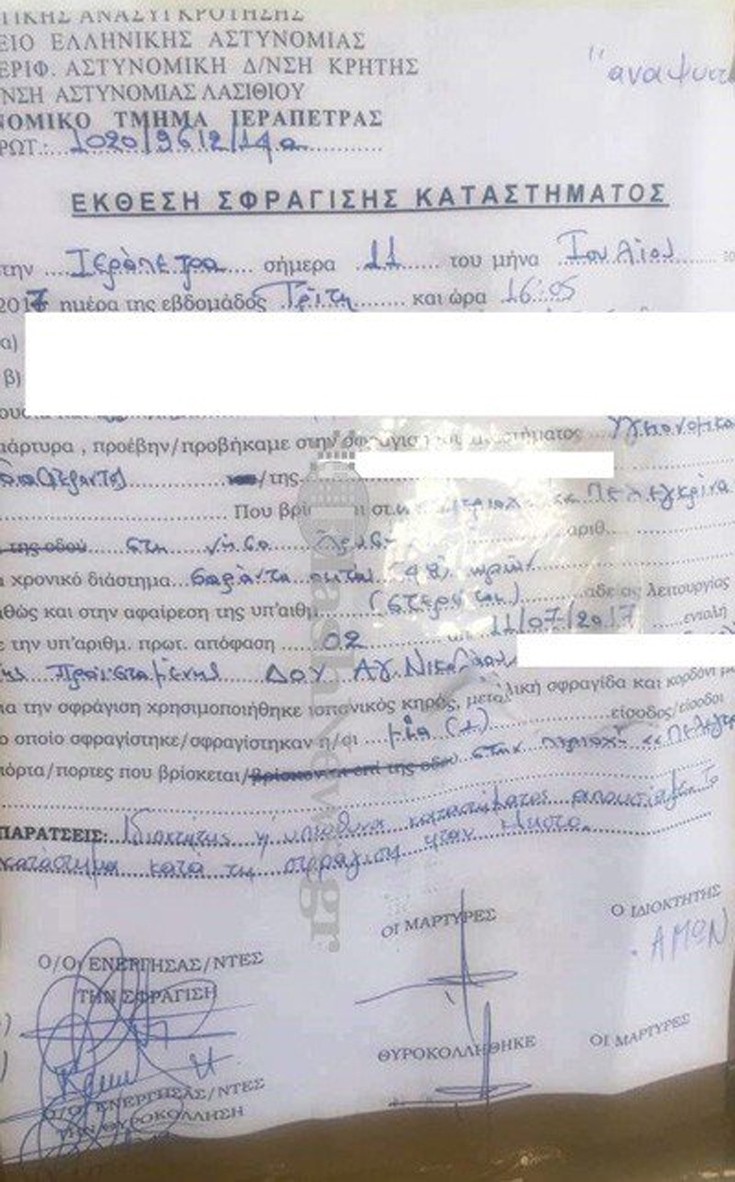 ΤΙΚΗΣ ΑΝΑΣΥΓΚΡΟΤΗΣΗΣ
ΕΙΟ ΕΛΛΗΝΙΚΗΣ ΑΣΤΥΝΟΜΙΑΣ
ΕΡΙΦ. ΑΣΤΥΝΟΜΙΚΗ Δ/ΝΣΗ ΚΡΗΤΗΣ
ΝΣΗ ΑΣΤΥΝΟΜΙΑΣ ΛΑΣΙΘΙΟΥ
ΝΟΜΙΚΟ ΤΜΗΜΑ ΙΕΡΑΠΕΤΡΑΣ
ΡΩΤ.: 1020/9612/1
"αναψυ
ΕΚΘΕΣΗ ΣΦΡΑΓΙΣΗΣ ΚΑΤΑΣΤΗΜΑΤΟΣ
την Ιεράπετρα σήμερα 11 του μήνα Ιουλίου
2017 ημέρα της εβδομάδος Τρίτη και ώρα 16:05
α)
β)
μάρτυρα , προέβην/προβήκαμε στην σφράγιση του καταστήματος Υγειονομικο
/της
Που βρί στ περιοχ « Πελεγκρίνα
της οδού στη νήσο αριθ.
χρονικό διάστημα σαράντα οκτώ (48) ωρών
θώς και στην αφαίρεση της υπ'αιθμ. (στερείται) αδείας λειτουργίας
ε την υπ'αριθμ. πρωτ. απόφαση 02 11/07/2017 εντολή
ης Προϊσταμένης ΔΟΥ ΑΓ. Νικολάου
ια την σφράγιση χρησιμοποιήθηκε ισπανικός κηρός, μεταλλική σφραγίδα και κορδόνι με
ο οποίο σφραγίστηκε/σφραγίστηκαν η/οι μία (1) είσοδος/είσοδοι
πόρτα/πορτες που βρίσκεται/βρίσκονται επί της οδού στην περιοχή « Πελεγκρ
ΠΑΡΑΤΣΕΙΣ: Ιδιοκτήτης ή υπεύθυνος καταστήματος απουσίαζε. Το
κατάστημα κατά τη σφράγιση ήταν κλειστό.
Ο/ΟΙ ΕΝΕΡΓΗΣΑΣ/ΝΤΕΣ ΟΙ ΜΑΡΤΥΡΕΣ Ο ΙΔΙΟΚΤΗΤΗΣ
ΤΗΝ ΣΦΡΑΓΙΣΗ ΑΠΩΝ
ΘΥΡΟΚΟΛΛΗΘΗΚΕ ΟΙ ΜΑΡΤΥΡΕΣ
Ο/ΟΙ ΕΝΕΡΓΗΣΑΣ/ΝΤΕΣ
ΤΗΝ ΘΥΡΟΚΟΛΛΗΣΗ
FlashNews.gr